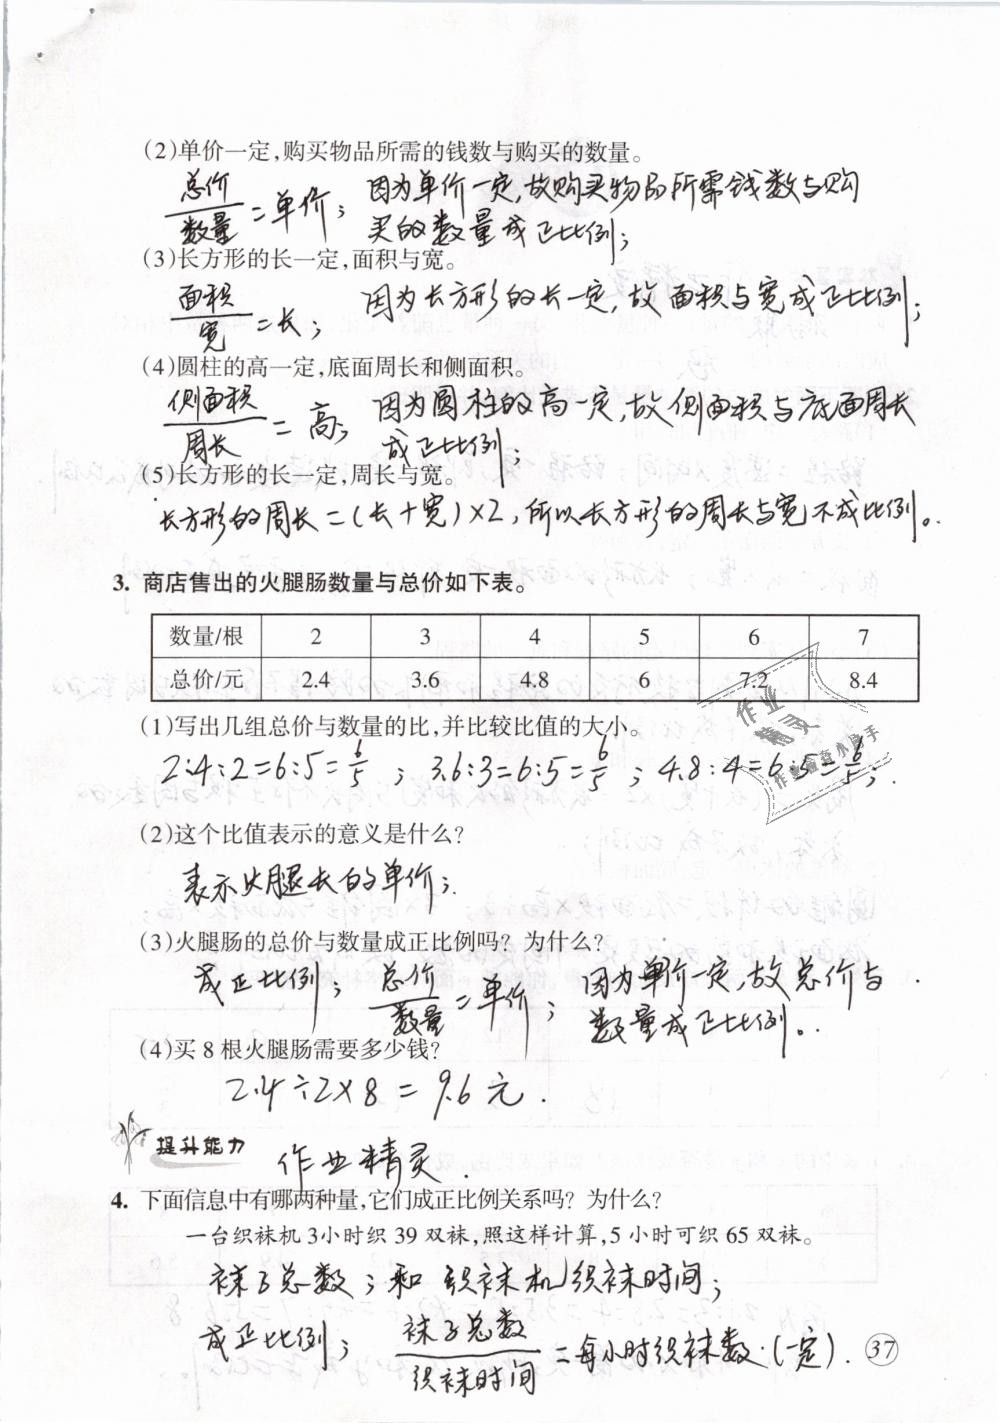 (2)单价一定,购买物品所需的钱数与购买的数量。
总价/数量=单价; 因为单价一定,故购买物品所需钱数与购
买的数量成正比例;
(3)长方形的长一定,面积与宽。
面积/宽=长; 因为长方形的长一定,故面积与宽成正比例;
(4)圆柱的高一定,底面周长和侧面积。
侧面积/周长=高; 因为圆柱的高一定,故侧面积与底面周长
成正比例;
(5)长方形的长一定,周长与宽。
长方形的周长=(长+宽)×2,所以长方形的周长与宽不成比例。
3. 商店售出的火腿肠数量与总价如下表。
数量/根 2 3 4 5 6 7
总价/元 2.4 3.6 4.8 6 7.2 8.4
(1)写出几组总价与数量的比,并比较比值的大小。
2.4:2=6:5=6/5; 3.6:3=6:5=6/5; 4.8:4=6:5=6/5;
作业
精灵
作业检查小助手
(2)这个比值表示的意义是什么?
表示火腿长的单价;
(3)火腿肠的总价与数量成正比例吗? 为什么?
成正比例; 总价/数量=单价; 因为单价一定,故总价与
数量成正比例。
(4)买 8 根火腿肠需要多少钱?
2.4÷2×8=9.6元.
提升能力
作业精灵
4. 下面信息中有哪两种量,它们成正比例关系吗? 为什么?
一台织袜机 3小时织 39 双袜,照这样计算,5 小时可织 65 双袜。
袜子总数;和织袜机织袜时间;
成正比例; 袜子总数/织袜时间=每小时织袜数.(一定).
37